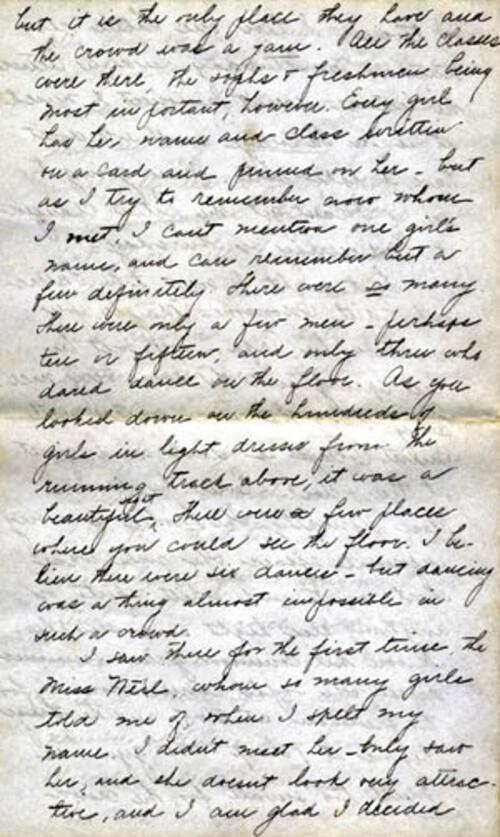 but it is the only place they have and
the crowd was a jam. All the classes
were there, the sophs & freshmen being
most important, however. Every girl
has her name and class written
on a card and pinned on her - but
as I try to remember now whom
I met, I can't mention one girl's
name, and can remember but a
few definitely. There were so many
There were only a few men - perhaps
ten or fifteen, and only three who
dared dance on the floor. As you
looked down on the hundreds of
girls in light dresses from the
running track above, it was a
beautiful sight, there were few places
where you could see the floor. I be-
lieve there were six dances - but dancing
was a thing almost impossible in
such a crowd.
I saw there for the first time, the
Miss, whom so many girls
told me of when I spelt my
name. I didn't meet her - only saw
her, and she doesn't look very attrac-
tive, and I am glad I decided